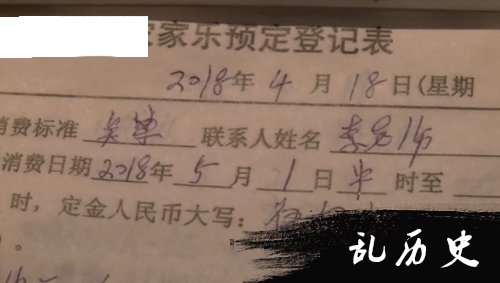 家乐预定登记表
2018年4月18日(星期
消费标准 菜单 联系人姓名 李老师
消费日期2018年5月1日 时至
时,定金人民币大写:
乱历史